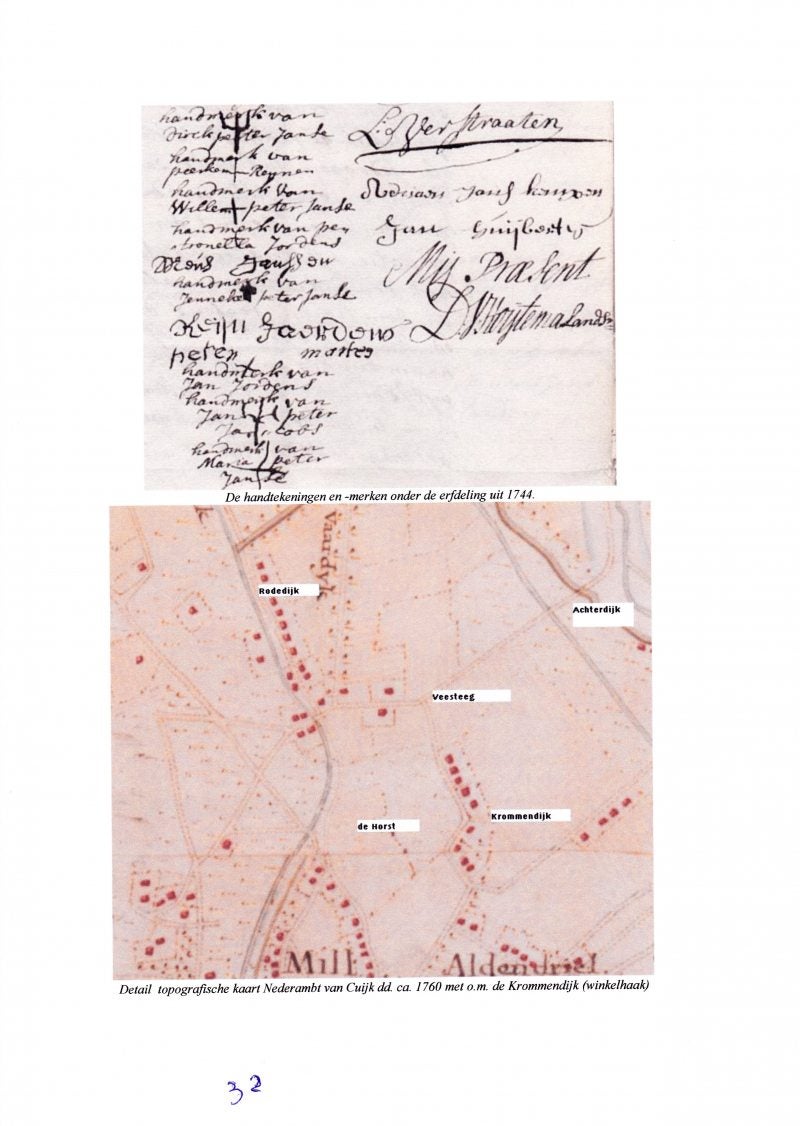 handmerk van
Dirck peter Janse
handmerk van
peerken Reynen
handmerk van
Willem peter Janse
handmerk van pey
tronella Jordens
Janssen
handmerk van
Jenneke peter Janse
Reijn Jaerdens
peter
handmerk van
Jan Jordens
handmerk van
Jan peter
Jacobs
handmerk van
Maria peter
Janse
L: Verstraaten
Jans kempen
Jan Huijberts
Mij Præsent
De handtekeningen en -merken onder de erfdeling uit 1744.
Vaardyk
Rodedijk
Achterdijk
Veesteeg
Krommendijk
de Horst
Mill
Aldendriel
Detail topografische kaart Nederambt van Cuijk dd. ca. 1760 met o.m. de Krommendijk (winkelhaak)
32